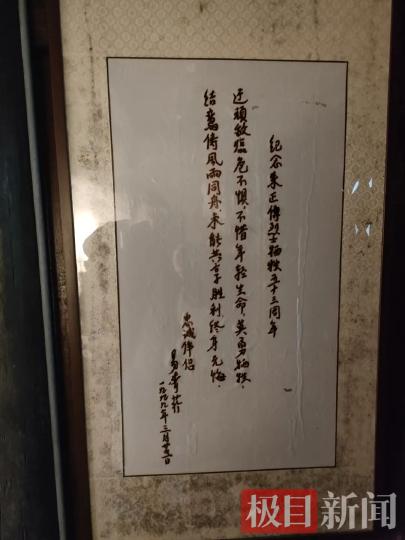 纪念朱正传烈士牺牲五十三周年
迂顽敌临危不惧，不惜年轻生命，英勇牺牲，
结鸾俦风雨同舟，未能共享胜利，终身无悔。
忠诚伴侣
易
一九九九年三月廿五日
极目新闻